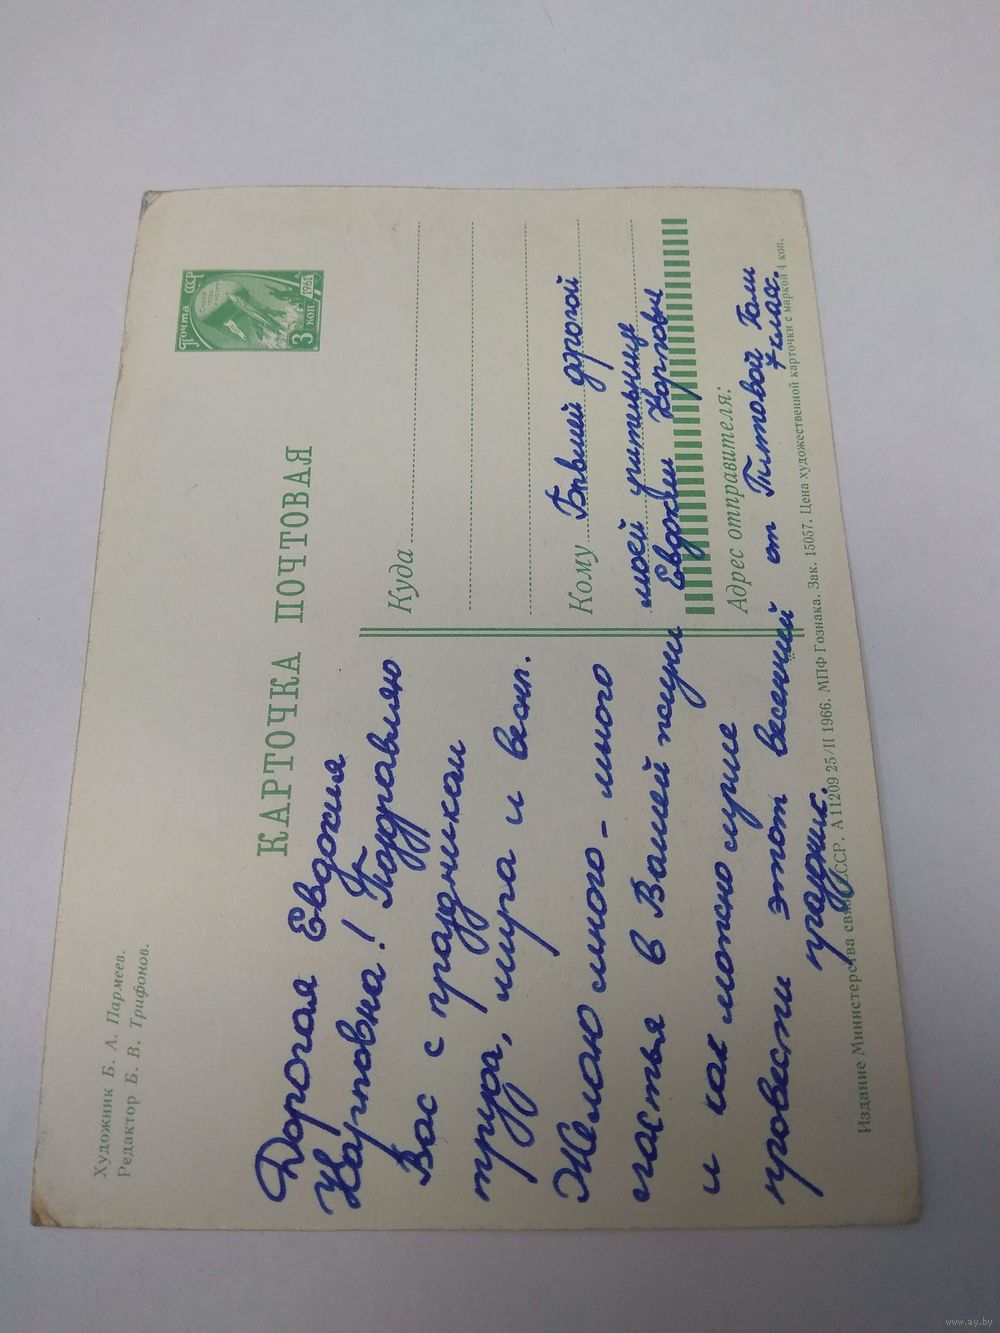 Художник Б. А. Пармеев.
Редактор Б. В. Трифонов.
КАРТОЧКА ПОЧТОВАЯ
Почта СССР
3 коп
1961
Дорогая Евдокия
Карповна! Поздравляю
Вас с праздником
труда, мира и весны.
Желаю много-много
счастья в Вашей жизни
и как можно лучше
провести этот весенний
праздник.
Куда
Кому Бывшей дорогой
моей учительнице
Евдокии Карповне
Адрес отправителя:
от Титовой Гали
7 класс.
Издание Министерства связи СССР. А11209 25/II 1966. МПФ Гознака. Зак. 15057. Цена художественной карточки с маркой 4 коп.
www.ay.by